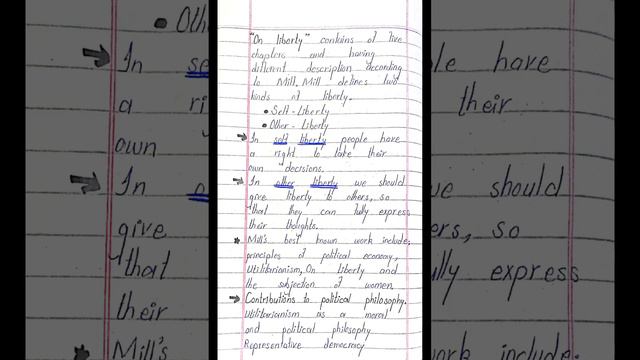 "On liberty" contains of five
chapters and having
different description according
to Mill. Mill defines two
kinds of liberty.
• Self-Liberty
• Other-Liberty
→ In self liberty people have
a right to take their
own decisions.
→ In other liberty we should
give liberty to others, so
that they can fully express
their thoughts.
★ Mill's best known work include;
principles of political economy,
Utilitarianism, On liberty and
the subjection of women.
→ Contributions to political philosophy.
Utilitarianism as a moral
and political philosophy
Representative democracy